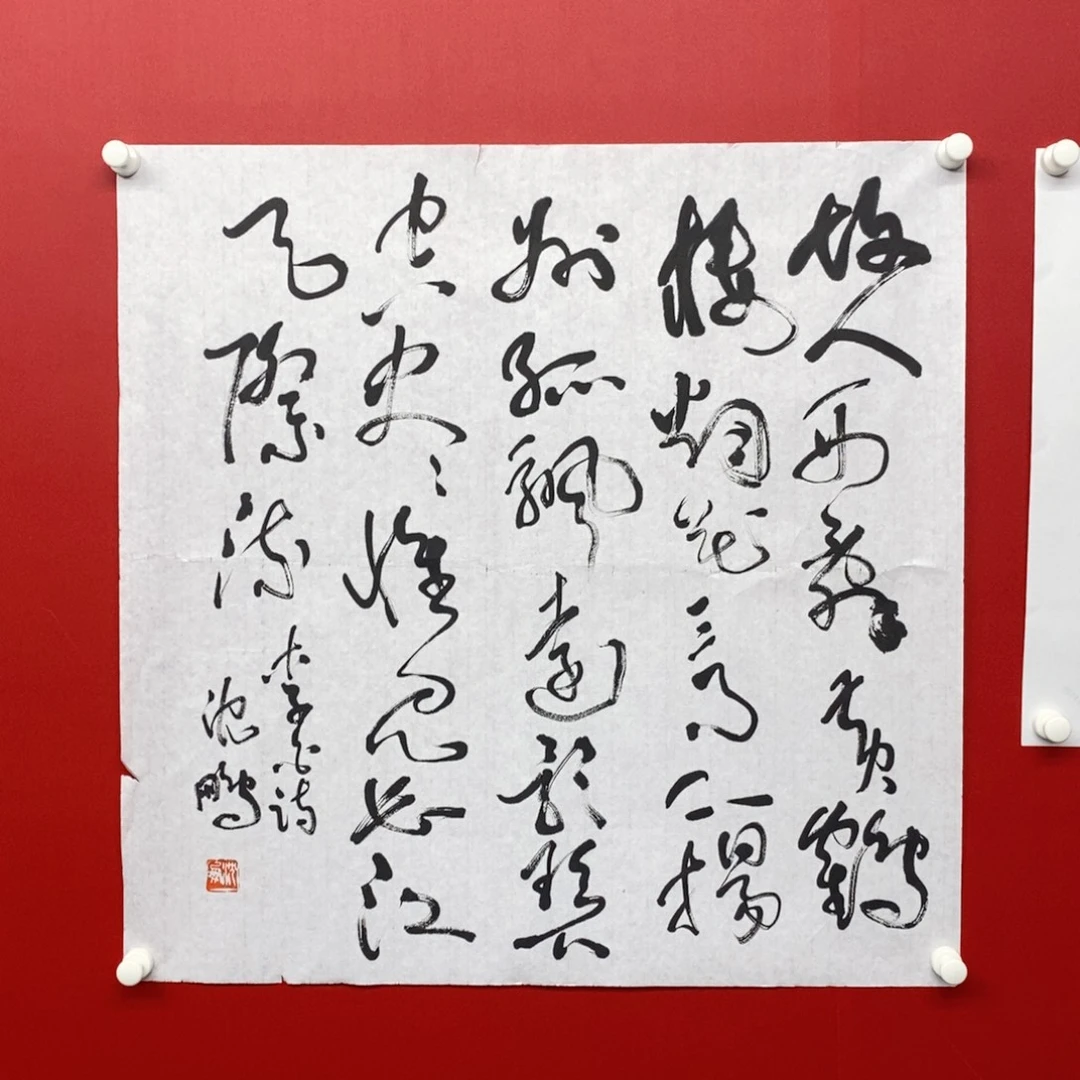 故人西辭黄鶴
樓烟花三月下揚
州孤颿遠影碧
空尽惟見長江
天際流
李白詩
沈鵬